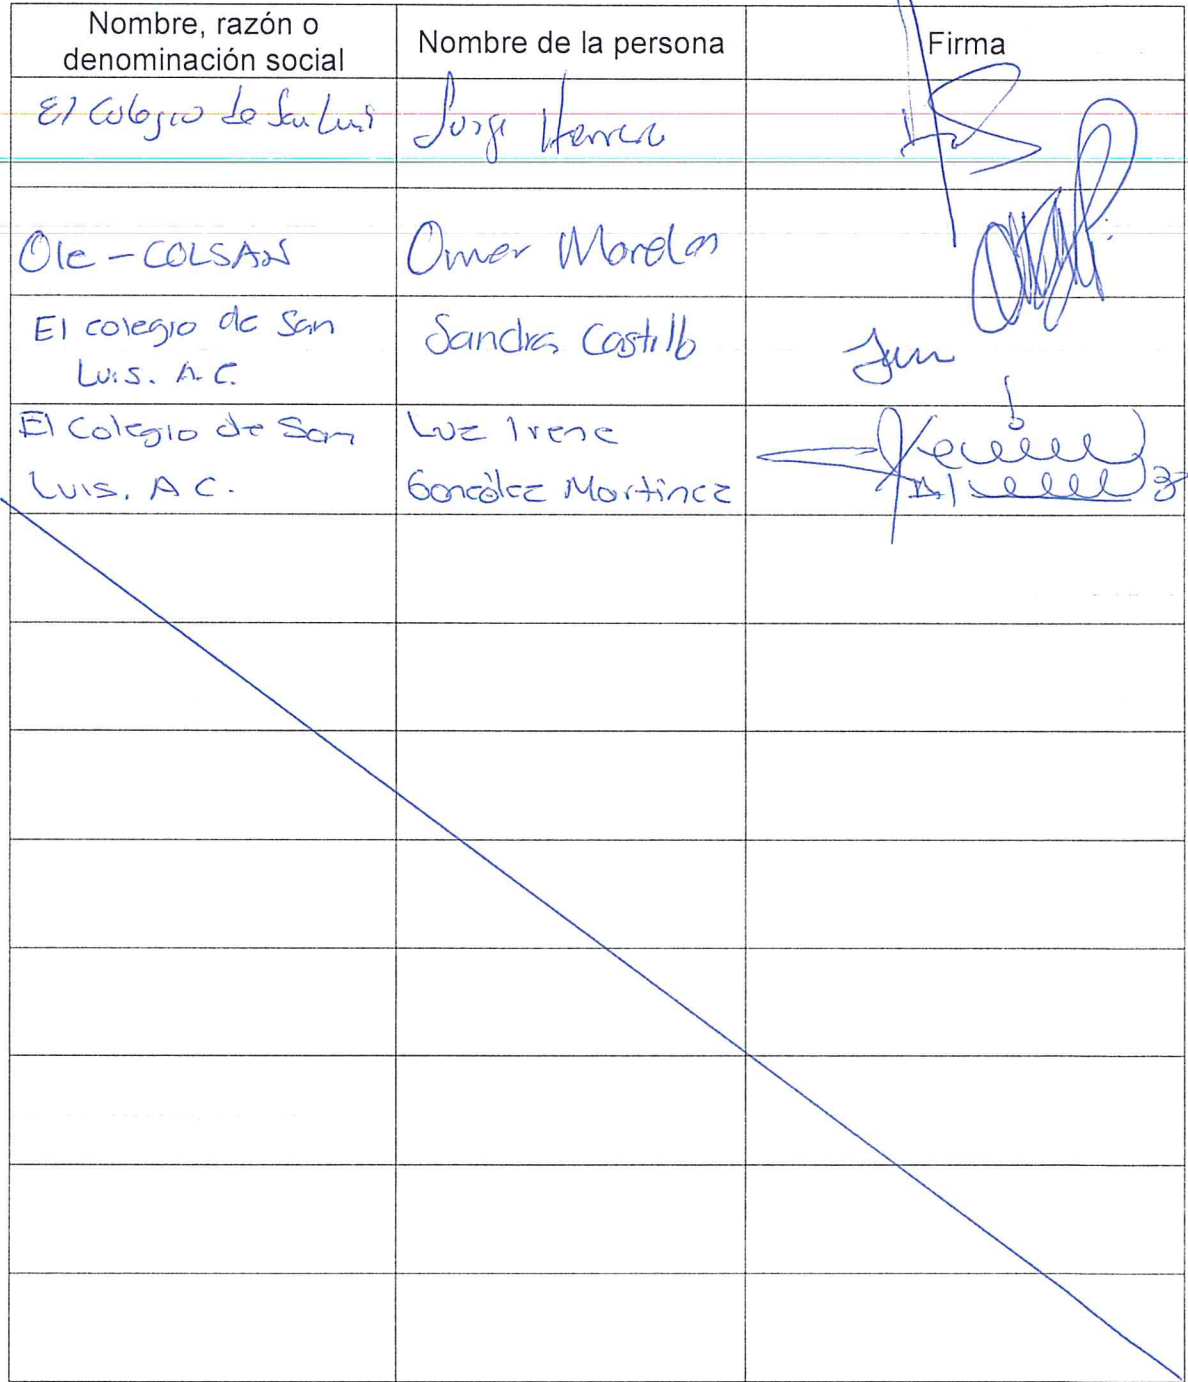 Nombre, razón o
denominación social
Nombre de la persona
Firma
El Colegio de San Luis
Jorge Herrera
Ole - COLSAN
Omar Morelos
El colegio de San
Luis. A.C.
Sandra Castillo
El Colegio de San
Luis. A C.
Luz Irene
González Martínez